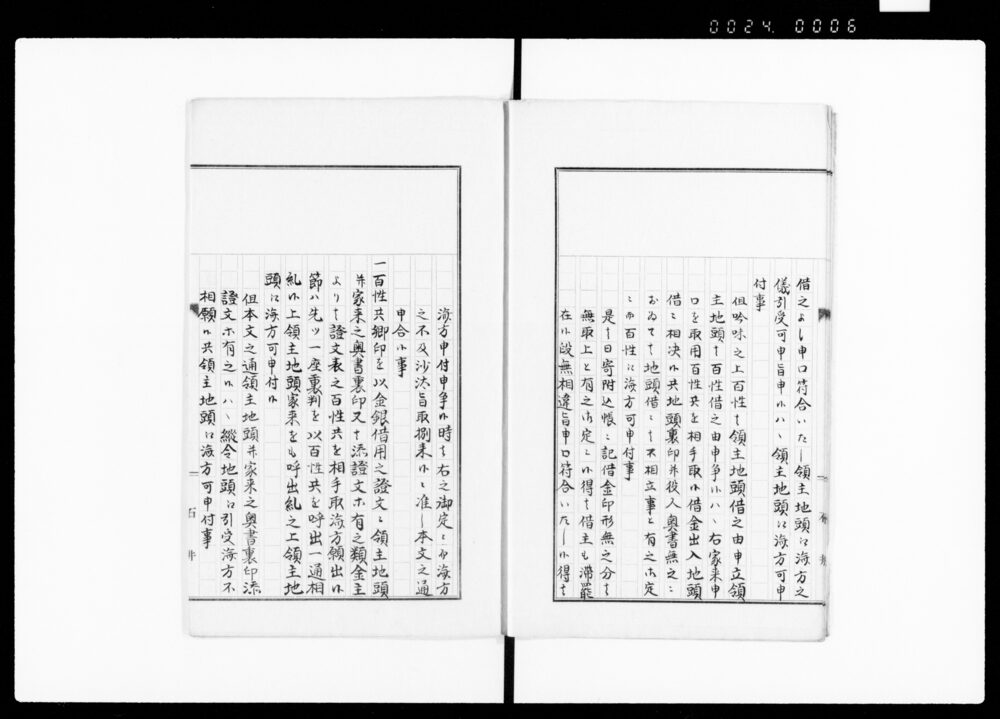 0024.0006
借之よし申口符合いたし領主地頭江済方之
儀引受可申旨申候ハヽ領主地頭江済方可申
付事
但吟味之上百性者領主地頭借之由申立領
主地頭者百性借之由申争候ハヽ右家来申
口を取用百性共を相手取候借金出入地頭
借ニ相決候共地頭裏印并役人奥書無之ニ
おゐてハ地頭借ニ者不相立事と有之御定
ニ而百性江済方可申付事
是者日寄附込帳ニ記借金印形無之分者
無取上と有之御定ニ候得共借主も滞罷
在候段無相違旨申口符合いたし候得者
済方申付申争候時者右之御定ニ而済方
之不及沙汰旨取捌来候ニ准し本文之通
申合候事
一百性共郷印を以金銀借用之證文ニ領主地頭
并家来之奥書裏印又者添證文等有之類金主
より者證文表之百性共を相手取済方願出候
節ハ先ツ一座裏判を以百性共を呼出一通相
糺候上領主地頭家来をも呼出糺之上領主地
頭江済方可申付候
但本文之通領主地頭并家来之奥書裏印添
證文等有之候ハヽ縱令地頭江引受済方不
相願候共領主地頭江済方可申付事